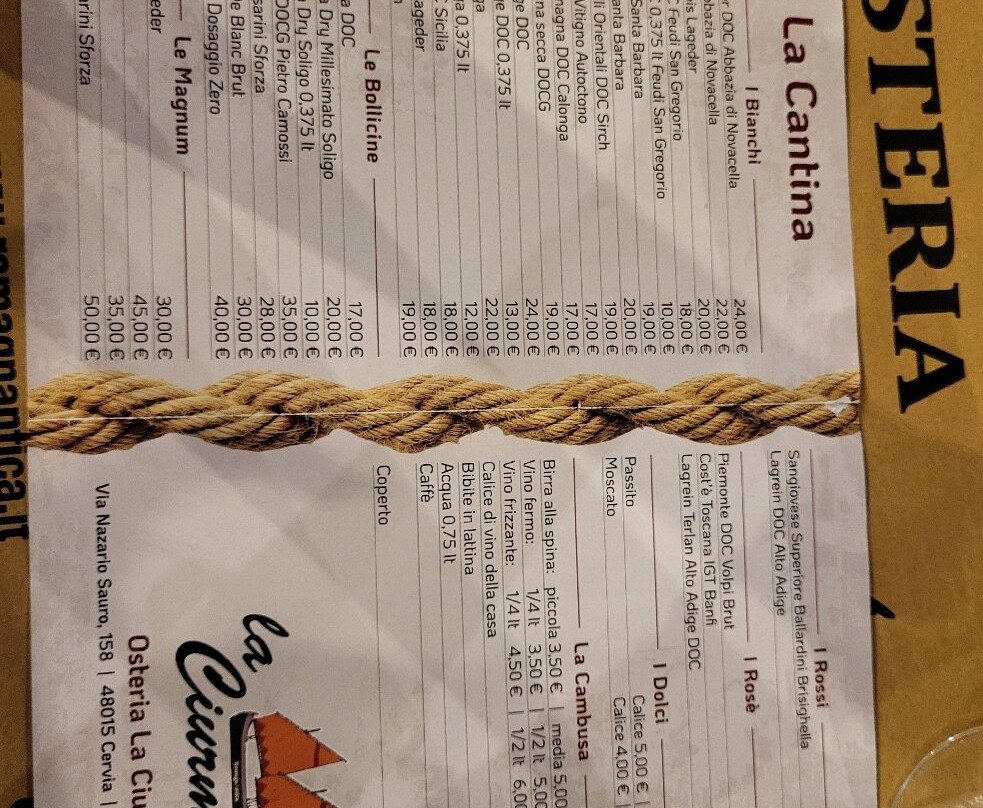 STERIA
La Cantina
I Bianchi
DOC Abbazia di Novacella 24,00 €
di Novacella 22,00 €
Lageder 20,00 €
Feudi San Gregorio 18,00 €
0,375 lt Feudi San Gregorio 10,00 €
Santa Barbara 19,00 €
anta Barbara 20,00 €
li Orientali DOC Sirch 19,00 €
Vitigno Autoctono 17,00 €
magna DOC Calonga 17,00 €
na secca DOCG 19,00 €
ge DOC 24,00 €
ge DOC 0,375 lt 13,00 €
ga 22,00 €
ga 0,375 lt 12,00 €
Sicilia 18,00 €
ageder 18,00 €
19,00 €
Le Bollicine
a DOC 17,00 €
Dry Millesimato Soligo 20,00 €
Dry Soligo 0,375 lt 10,00 €
DOCG Pietro Camossi 35,00 €
sarini Sforza 28,00 €
Blanc Brut 30,00 €
Dosaggio Zero 40,00 €
Le Magnum
eder 30,00 €
45,00 €
35,00 €
arini Sforza 50,00 €
I Rossi
Sangiovese Superiore Ballardini Brisighella
Lagrein DOC Alto Adige
I Rosè
Piemonte DOC Volpi Brut
Cost'è Toscana IGT Banfi
Lagrein Terlan Alto Adige DOC
I Dolci
Passito Calice 5,00 € |
Moscato Calice 4,00 € |
La Cambusa
Birra alla spina: piccola 3,50 € | media 5,00
Vino fermo: 1/4 lt 3,50 € | 1/2 lt 5,00
Vino frizzante: 1/4 lt 4,50 € | 1/2 lt 6,00
Calice di vino della casa
Bibite in lattina
Acqua 0,75 lt
Caffè
Coperto
la
Ciurm
Osteria La Ciu
Via Nazario Sauro, 158 | 48015 Cervia |
romagnantica.it